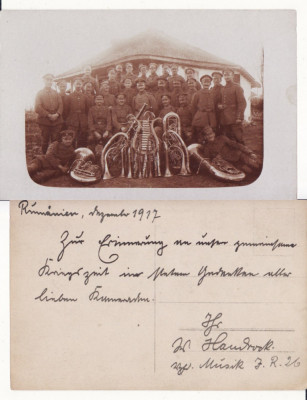 Rumänien, Dezember 1917
Zur Erinnerung an unser gemeinsame
Kriegszeit in stetem Gedenken aller
lieben Kameraden.
Ihr
W. Handrock.
Musik I. R. 26